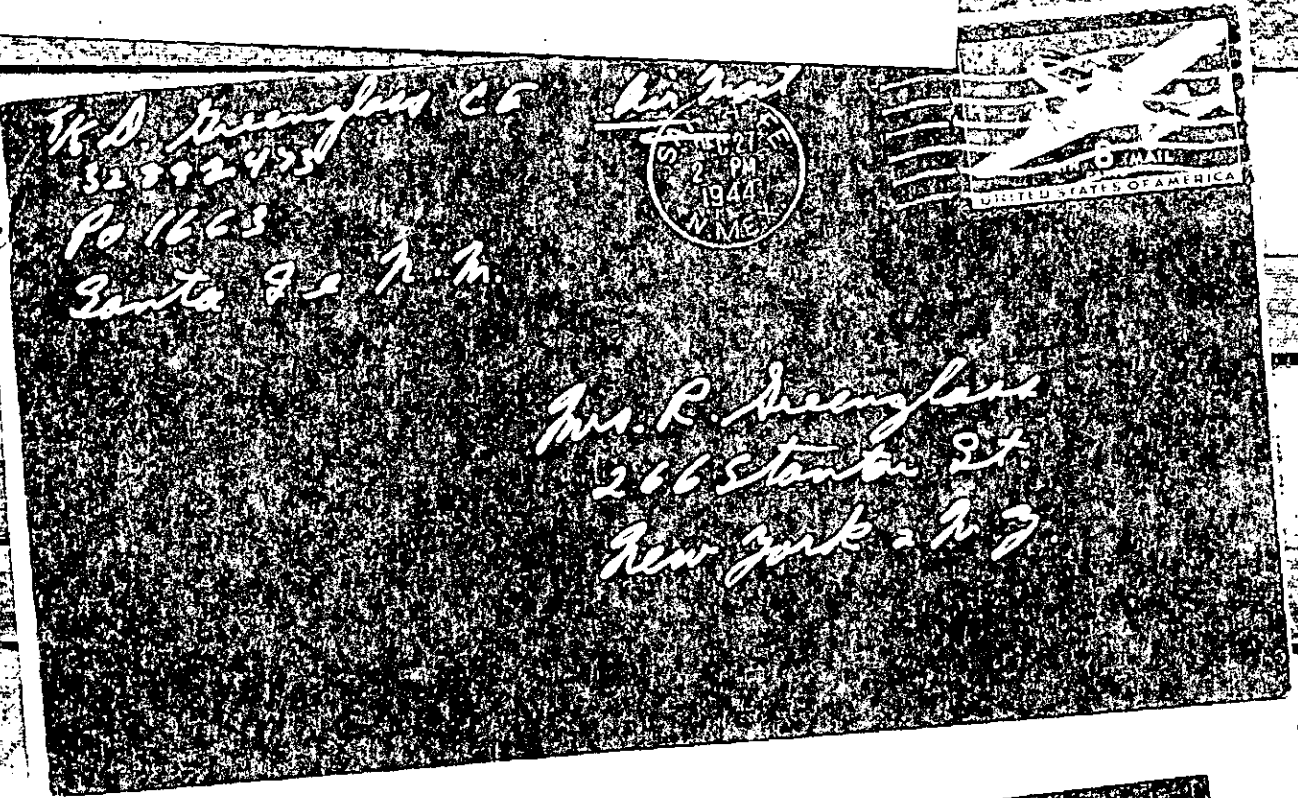 T/5 D. Greenglass CG
32882473
PO 1663
Santa Fe N.M.
Air Mail
SANTA FE
DEC 27
2 PM
1944
N MEX
8 MAIL
UNITED STATES OF AMERICA
Mrs. R. Greenglass
266 Stanton St.
New York 2 N.Y.